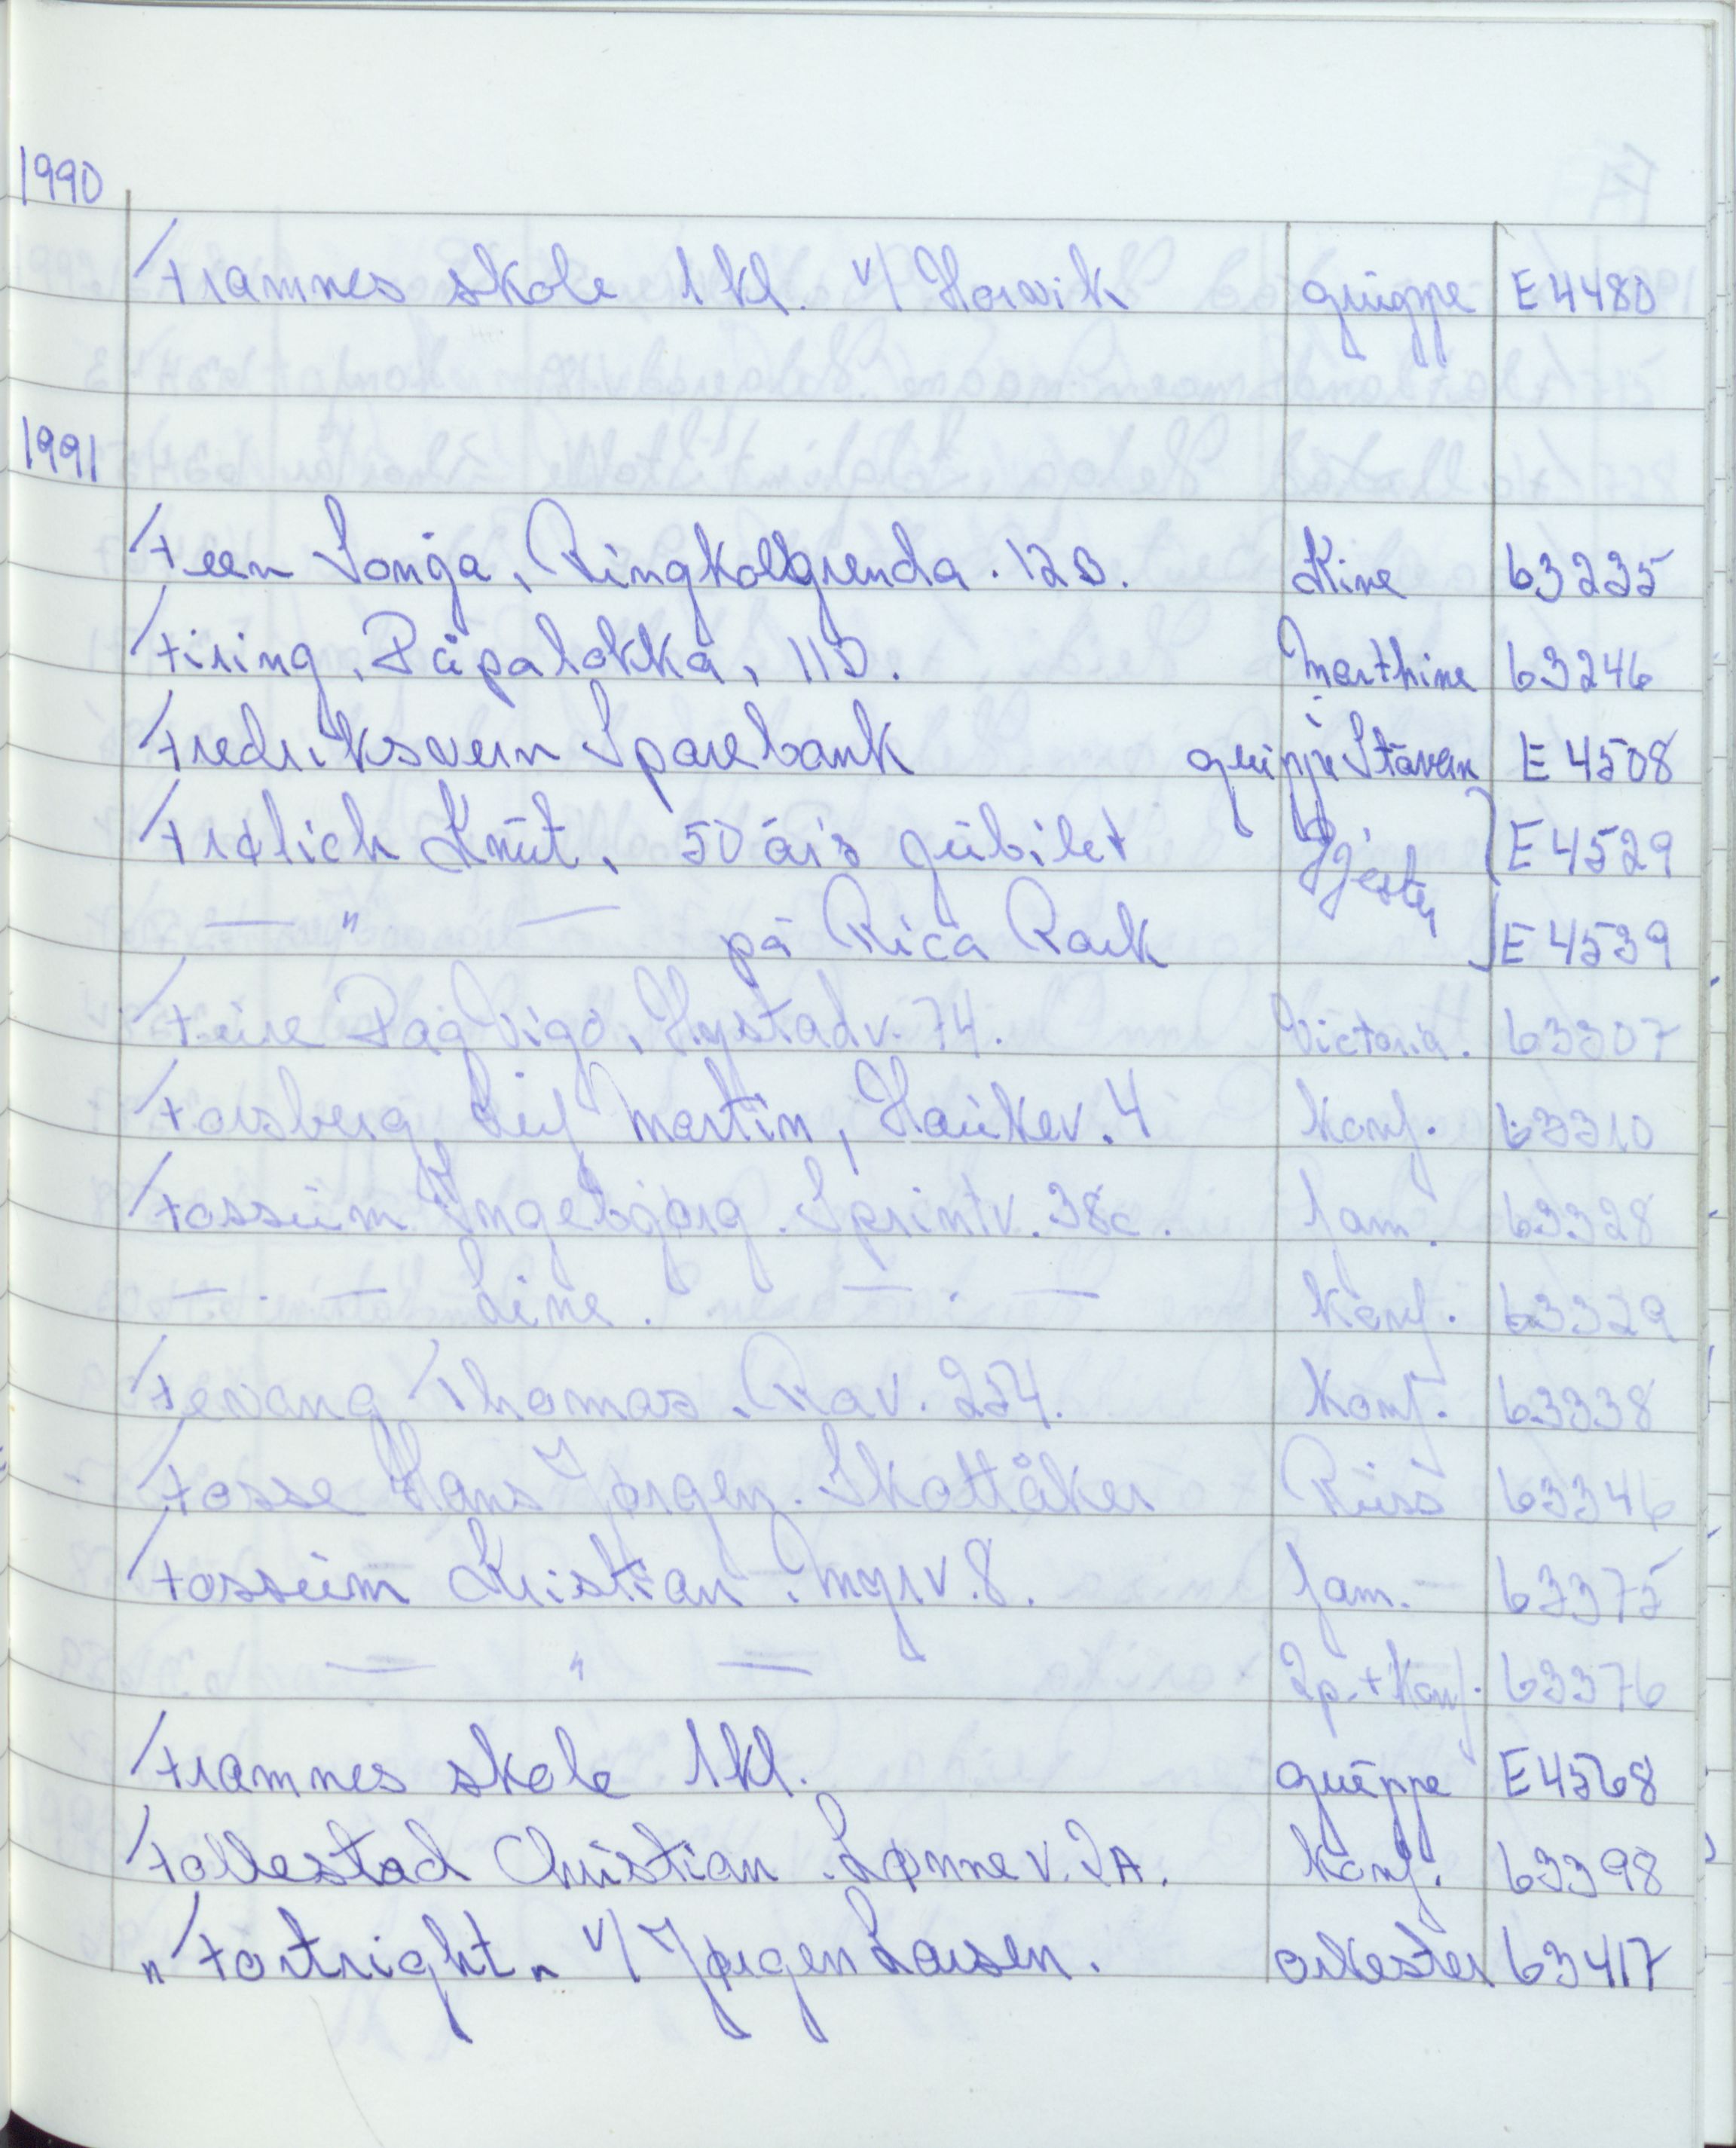 1990
Framnes skole 1 kl. v/ Horvik gruppe E 4480
1991
Feen Sonja, Ringkollgrenda. 12B. Kine 63235
Firing, Papaløkka, 11D. Marthine 63246
Fredriksvern Sparebank gruppe Stavern E 4508
Frølich Knut, 50 års jubilet Gjester E 4529
— " — på Rica Park E 4539
Feire Dag Vigo, Hystadv. 74. Victoria. 63307
Forsberg, Leif Martin, Haukev. 4 Konf. 63310
Fossum Ingebjørg. Sprintv. 38c. fam. 63328
— . — Line. — . — Konf. 63329
Fevang Thomas, Rav. 254. Konf. 63338
Fosse Hans Jørgen. Skottåker Russ 63346
Fossum Kristian, Myrv. 8. fam. — 63375
— " — 2p. + Konf. 63376
Framnes skole 1 kl. gruppe E 4568
Follestad Christian. Lønnev. 2A. Konf. 63398
"Fortright" v/ Jørgen Larsen. orkester 63417